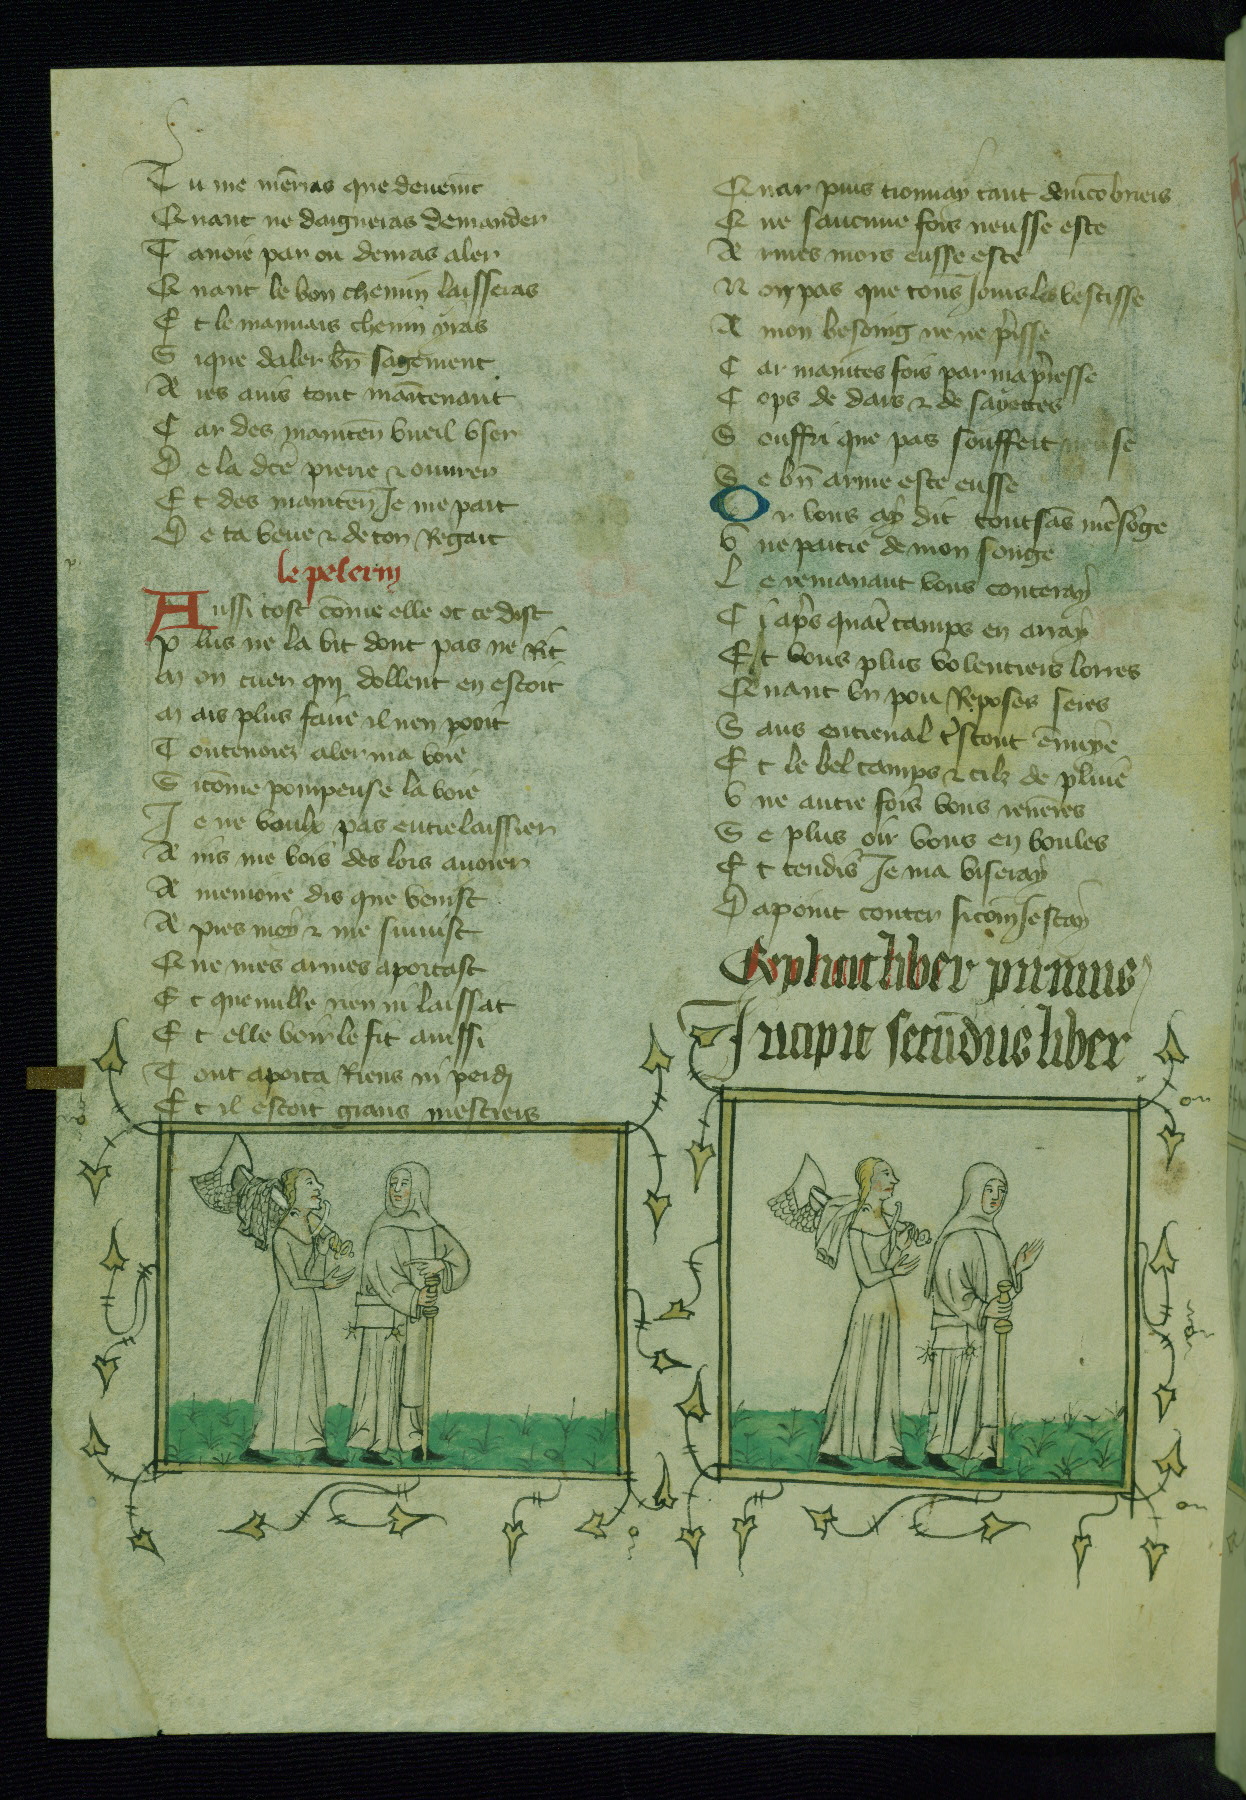 Tu me menras que devenir
Quant ne daigneras demander
T avoie par ou devras aler
Quant le bon chemin laisseras
Et le mauvais chemin yras
Si que daler bn sagement
Aies avis tout maintenant
Car des mainten vueil user
De la dce pierre & ouvrer
Et des mainten Je me part
De ta veue & de ton Regart
le pelerin
Aussi tost come elle ot ce dist
Plus ne la vit dont pas ne Rit
Mon cuer qui dollent en estoit
Mais plus faire il nen pooit
Toutevoiez aler ma voie
Si come pourpense lavoie
Je ne voulz pas entrelaissier
Ains me vois des lors avoier
A memoire dis que venist
Apres moy & me suivist
Que mes armes aportast
Et que nulle rien ni laissat
Et elle voir le fit aussi
Tout aporta Riens ni perdi
Et il estoit grans mestiers
Quar puis trouvay tant dencobriers
Que saucune fois neusse este
Armes mors eusse este
Non pas que tous Jours les vestisse
A mon besoing ne ne prisse
Car maintes fois par ma presse
Cops de dars & de sayettes
Souffri que pas souffert neusse
Se bn arme este eusse
Or vous ay dit tout sas mesoge
Une partie de mon songe
Le remanant vous conteray
Cy apres quat tamps en aray
Et vous plus volentiers lorres
Quant un pou Reposes seres
Sans entreval tstout ennuye
Et le bel tamps & cilz de pluie
Une autre fois vous revenres
Se plus oir vous en voules
Et tendis Je ma viseray
Dapoint conter sicom Jestay
Explicit liber primus
Incipit secundus liber